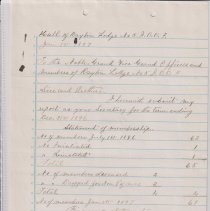 Hall of Dayton Lodge No 5 I.O.O.F.
Jan 10 1897
To the Noble Grand Vice Grand Officers and
members of Dayton Lodge No 5 I.O.O.F.
Sirs and Brothers
I herewith submit my
report as your Secretary for the term ending
Dec 31st 1896
Statement of membership.
No of members July 1st 1896 62
No Initiated 1
" Reinstated
Total 65
No of members deceased 2
" " Dropped
Total 4
No of members Jan 1st 1897 61